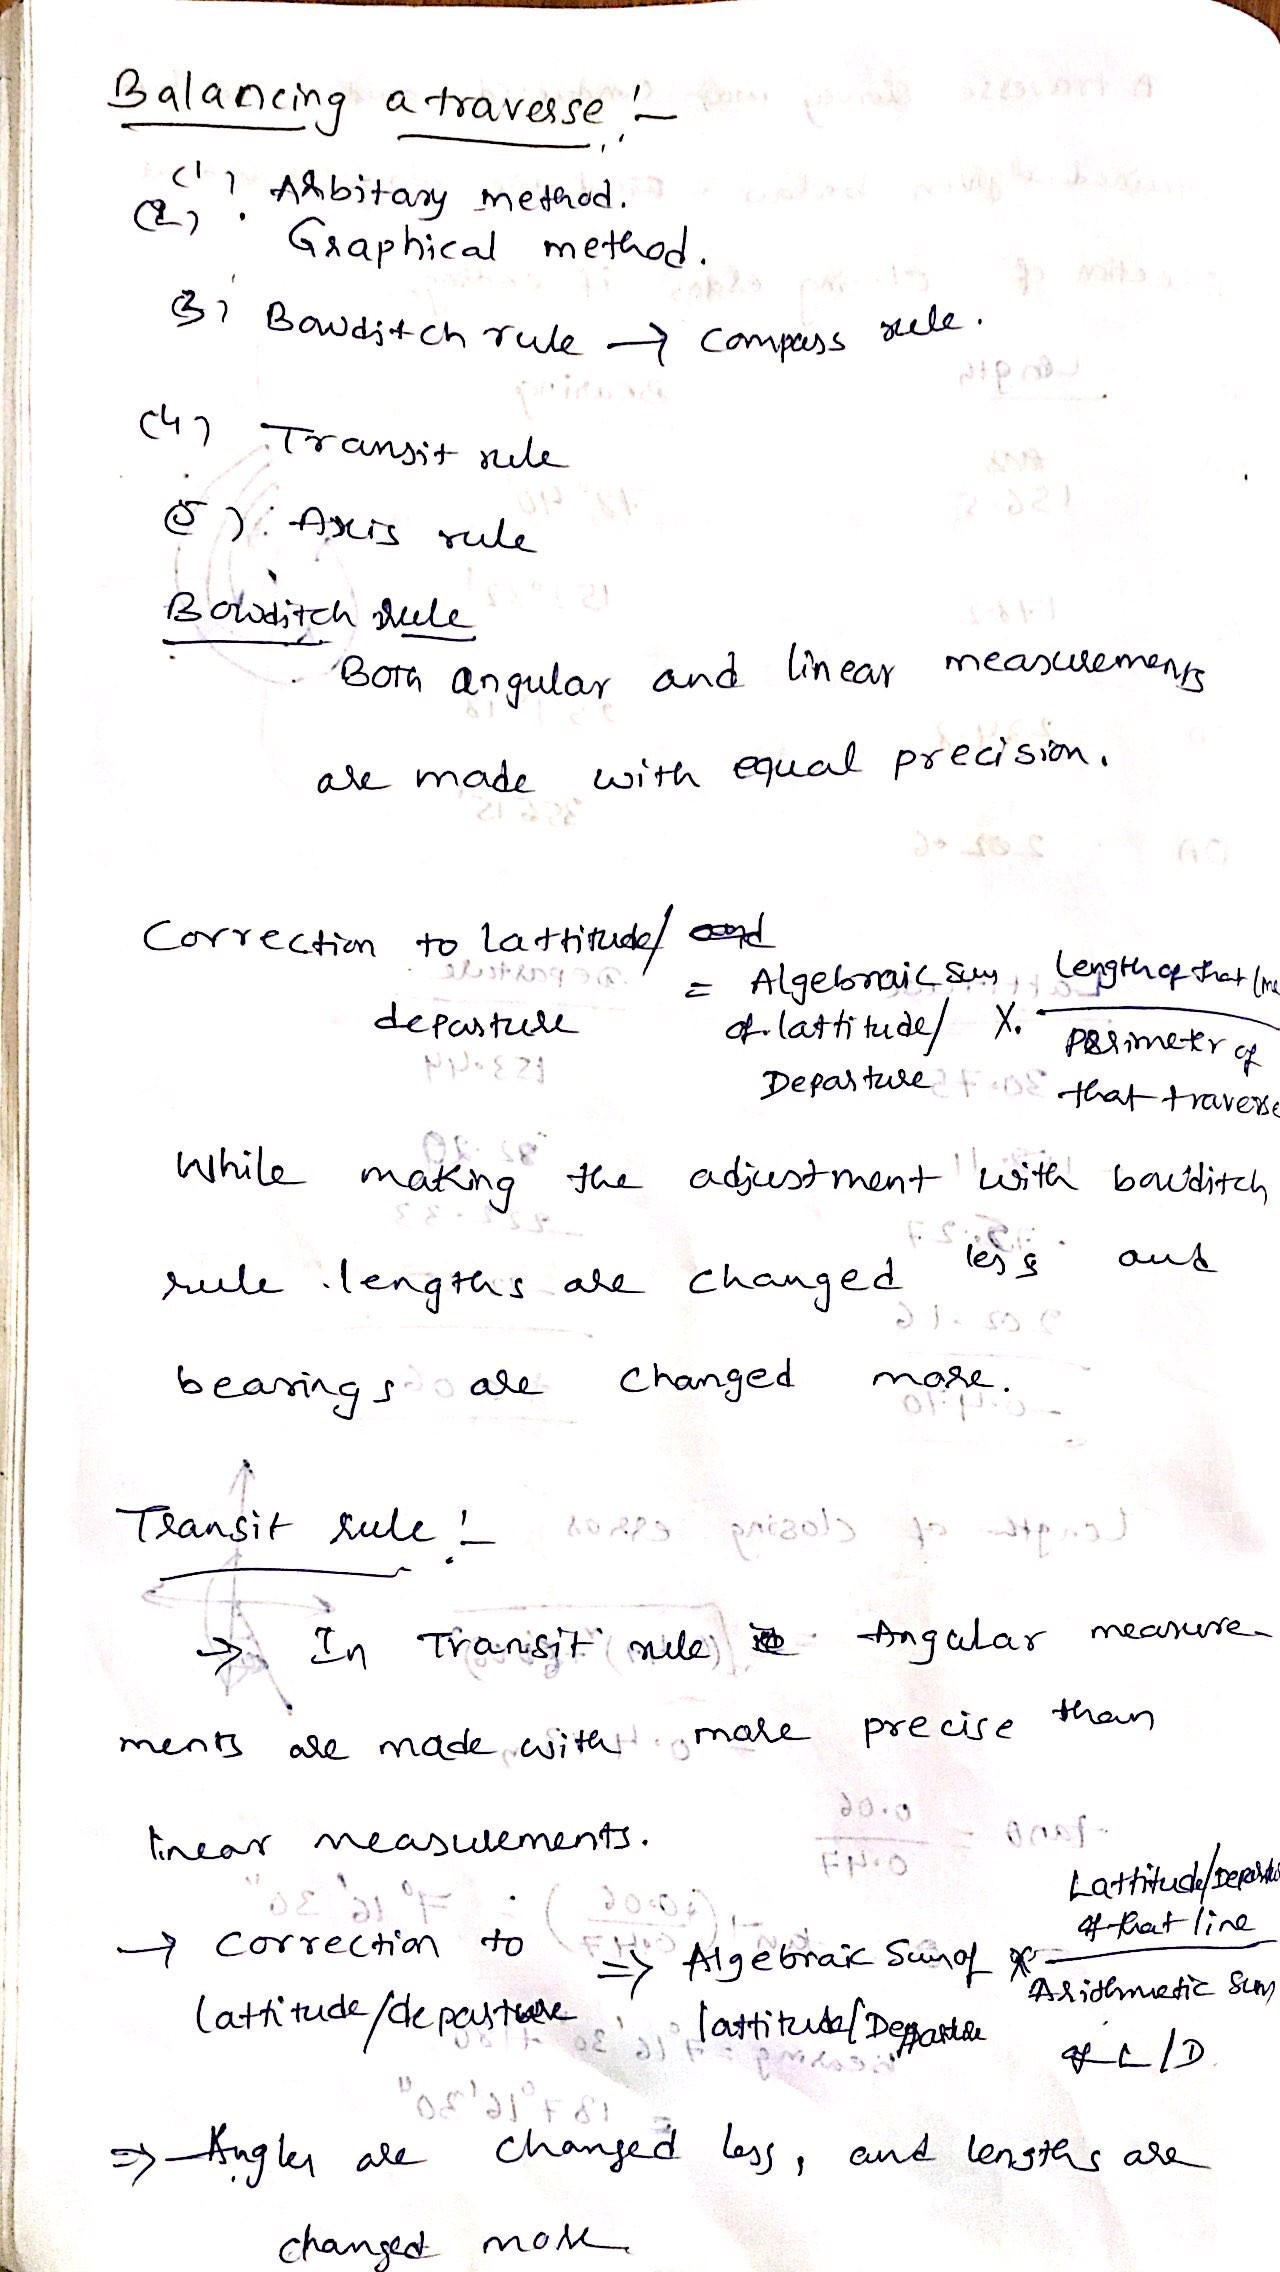 Balancing a traverse :-
(1) Arbitary method.
(2) Graphical method.
3) Bowditch rule → compass rule.
(4) Transit rule
(5) Axis rule
Bowditch rule
Both angular and linear measurements
are made with equal precision.
Correction to Lattitude/
departure = Algebraic sum of lattitude/ Departure X. Length of that line / Perimeter of that traverse
While making the adjustment with bowditch
rule lengths are changed less and
bearings are changed more.
Transit rule :-
⇒ In Transit rule Angular measure-
ments are made with more precise than
linear measurements.
→ Correction to
lattitude/departure ⇒ Algebraic Sum of lattitude/Departure x Lattitude/Departure of that line / Arithmetic Sum of L/D
⇒ Angles are changed less, and lengths are
changed more